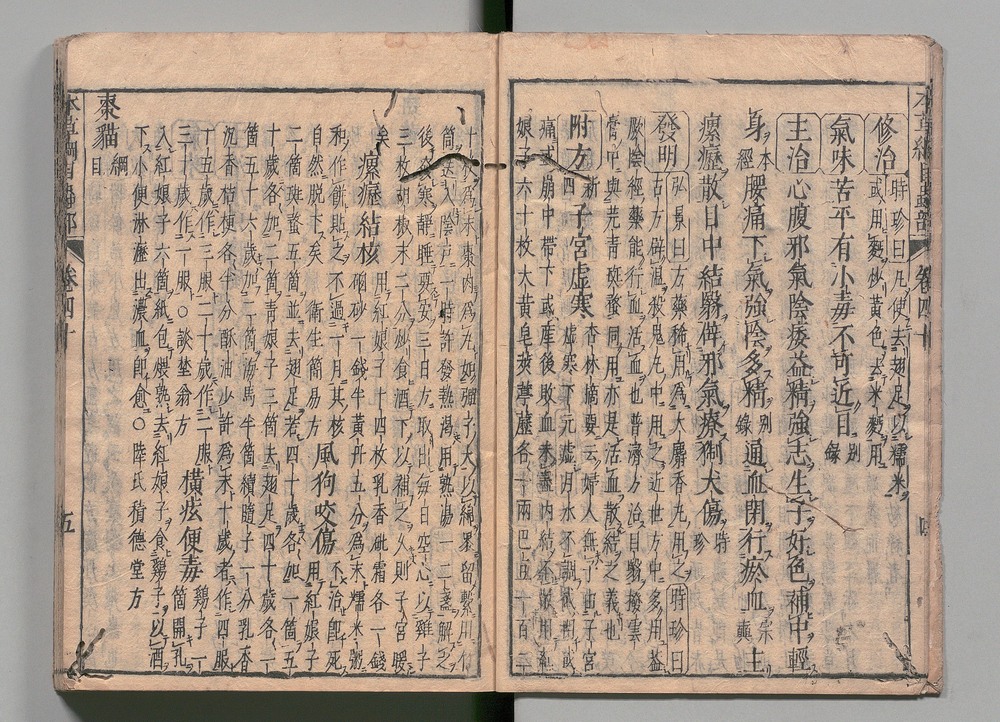 修治 時珍曰凡使去翅足以糯米
或用麪炒黃色去米麪用
氣味苦平有小毒不可近目 別錄
主治心腹邪氣陰痿益精強志生子好色補中輕
身 本經 腰痛下氣強陰多精 別錄 通血閉行瘀血 宗奭 主
瘰癧散目中結翳辟邪氣療猘犬傷 時珍
發明 弘景曰方藥稀用爲大麝香丸用之 時珍曰
古方辟瘟殺鬼丸中用之近世方中多用蓋
厥陰經藥能行血活血也普濟方治目翳撥雲
膏中與芫青斑蝥同用亦是活血散結之義也
附方 新四 子宮虛寒 杏林摘要云婦人無子由子宮
虛寒下元虛月水不調或
痛或崩中帶下或產後敗血未盡內結不散用紅
娘子六十枚大黃皂莢葶藶各一兩巴豆一百二
十枚爲末棗肉爲丸如彈子大以綿裹留繫用竹
筒送入陰戶一時許發熱渴用熟湯一二盞解之
後發寒靜睡要安三日方取出每日空心以雞子
三枚胡椒末二分炒食酒下以補之久則子宮暖
矣 瘰癧結核 用紅娘子十四枚乳香砒霜各一錢
硇砂一錢半黃丹五分爲末糯米粥
和作餅貼之不過一月其核
自然脫下矣 衛生簡易方 風狗咬傷 不治卽死用紅娘子
二箇斑蝥五箇並去翅足若四十歲各加一箇五
十歲各加二箇青娘子三箇去翅足四十歲各一
箇五十六歲加二箇海馬半箇續隨子一分乳香
沉香桔梗各半分酥油少許爲末十歲者作四服
十五歲作三服二十歲作二服
三十歲作一服○談埜翁方 橫痃便毒 雞子一箇開孔
入紅娘子六箇紙包煨熟去紅娘子食雞子以酒
下小便淋瀝出濃血卽愈○陸氏積德堂方
棗貓 綱目
卷四十
五